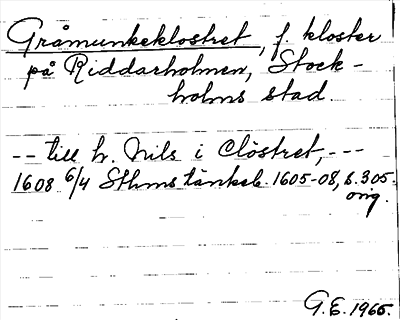 Gråmunkeklostret, f. kloster
på Riddarholmen, Stock-
holms stad.
-- till h. Nils i Clöstret, ---
1608 6/4 Sthms tänkeb. 1605-08, s. 305.
orig.
G.E. 1965.